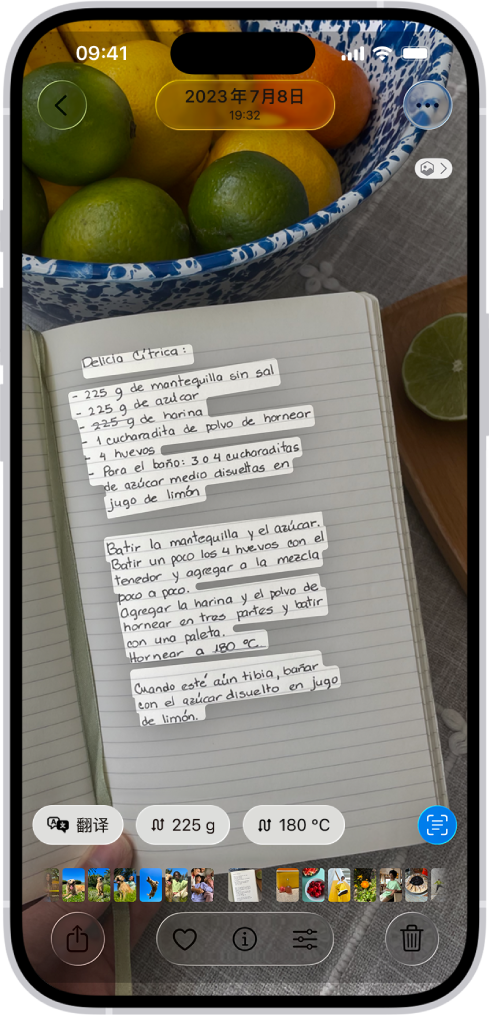 09:41
2023年7月8日
19:32
Delicia Cítrica:
- 225 g de mantequilla sin sal
- 225 g de azúcar
- 225 g de harina
- 1 cucharadita de polvo de hornear
- 4 huevos
- Para el baño: 3 o 4 cucharaditas
de azúcar medio disueltas en
jugo de limón
Batir la mantequilla y el azúcar.
Batir un poco los 4 huevos con el
tenedor y agregar a la mezcla
poco a poco.
Agregar la harina y el polvo de
hornear en tres partes y batir
con una paleta.
Hornear a 180 °C.
Cuando esté aún tibia, bañar
con el azúcar disuelto en jugo
de limón.
翻译
225 g
180 °C